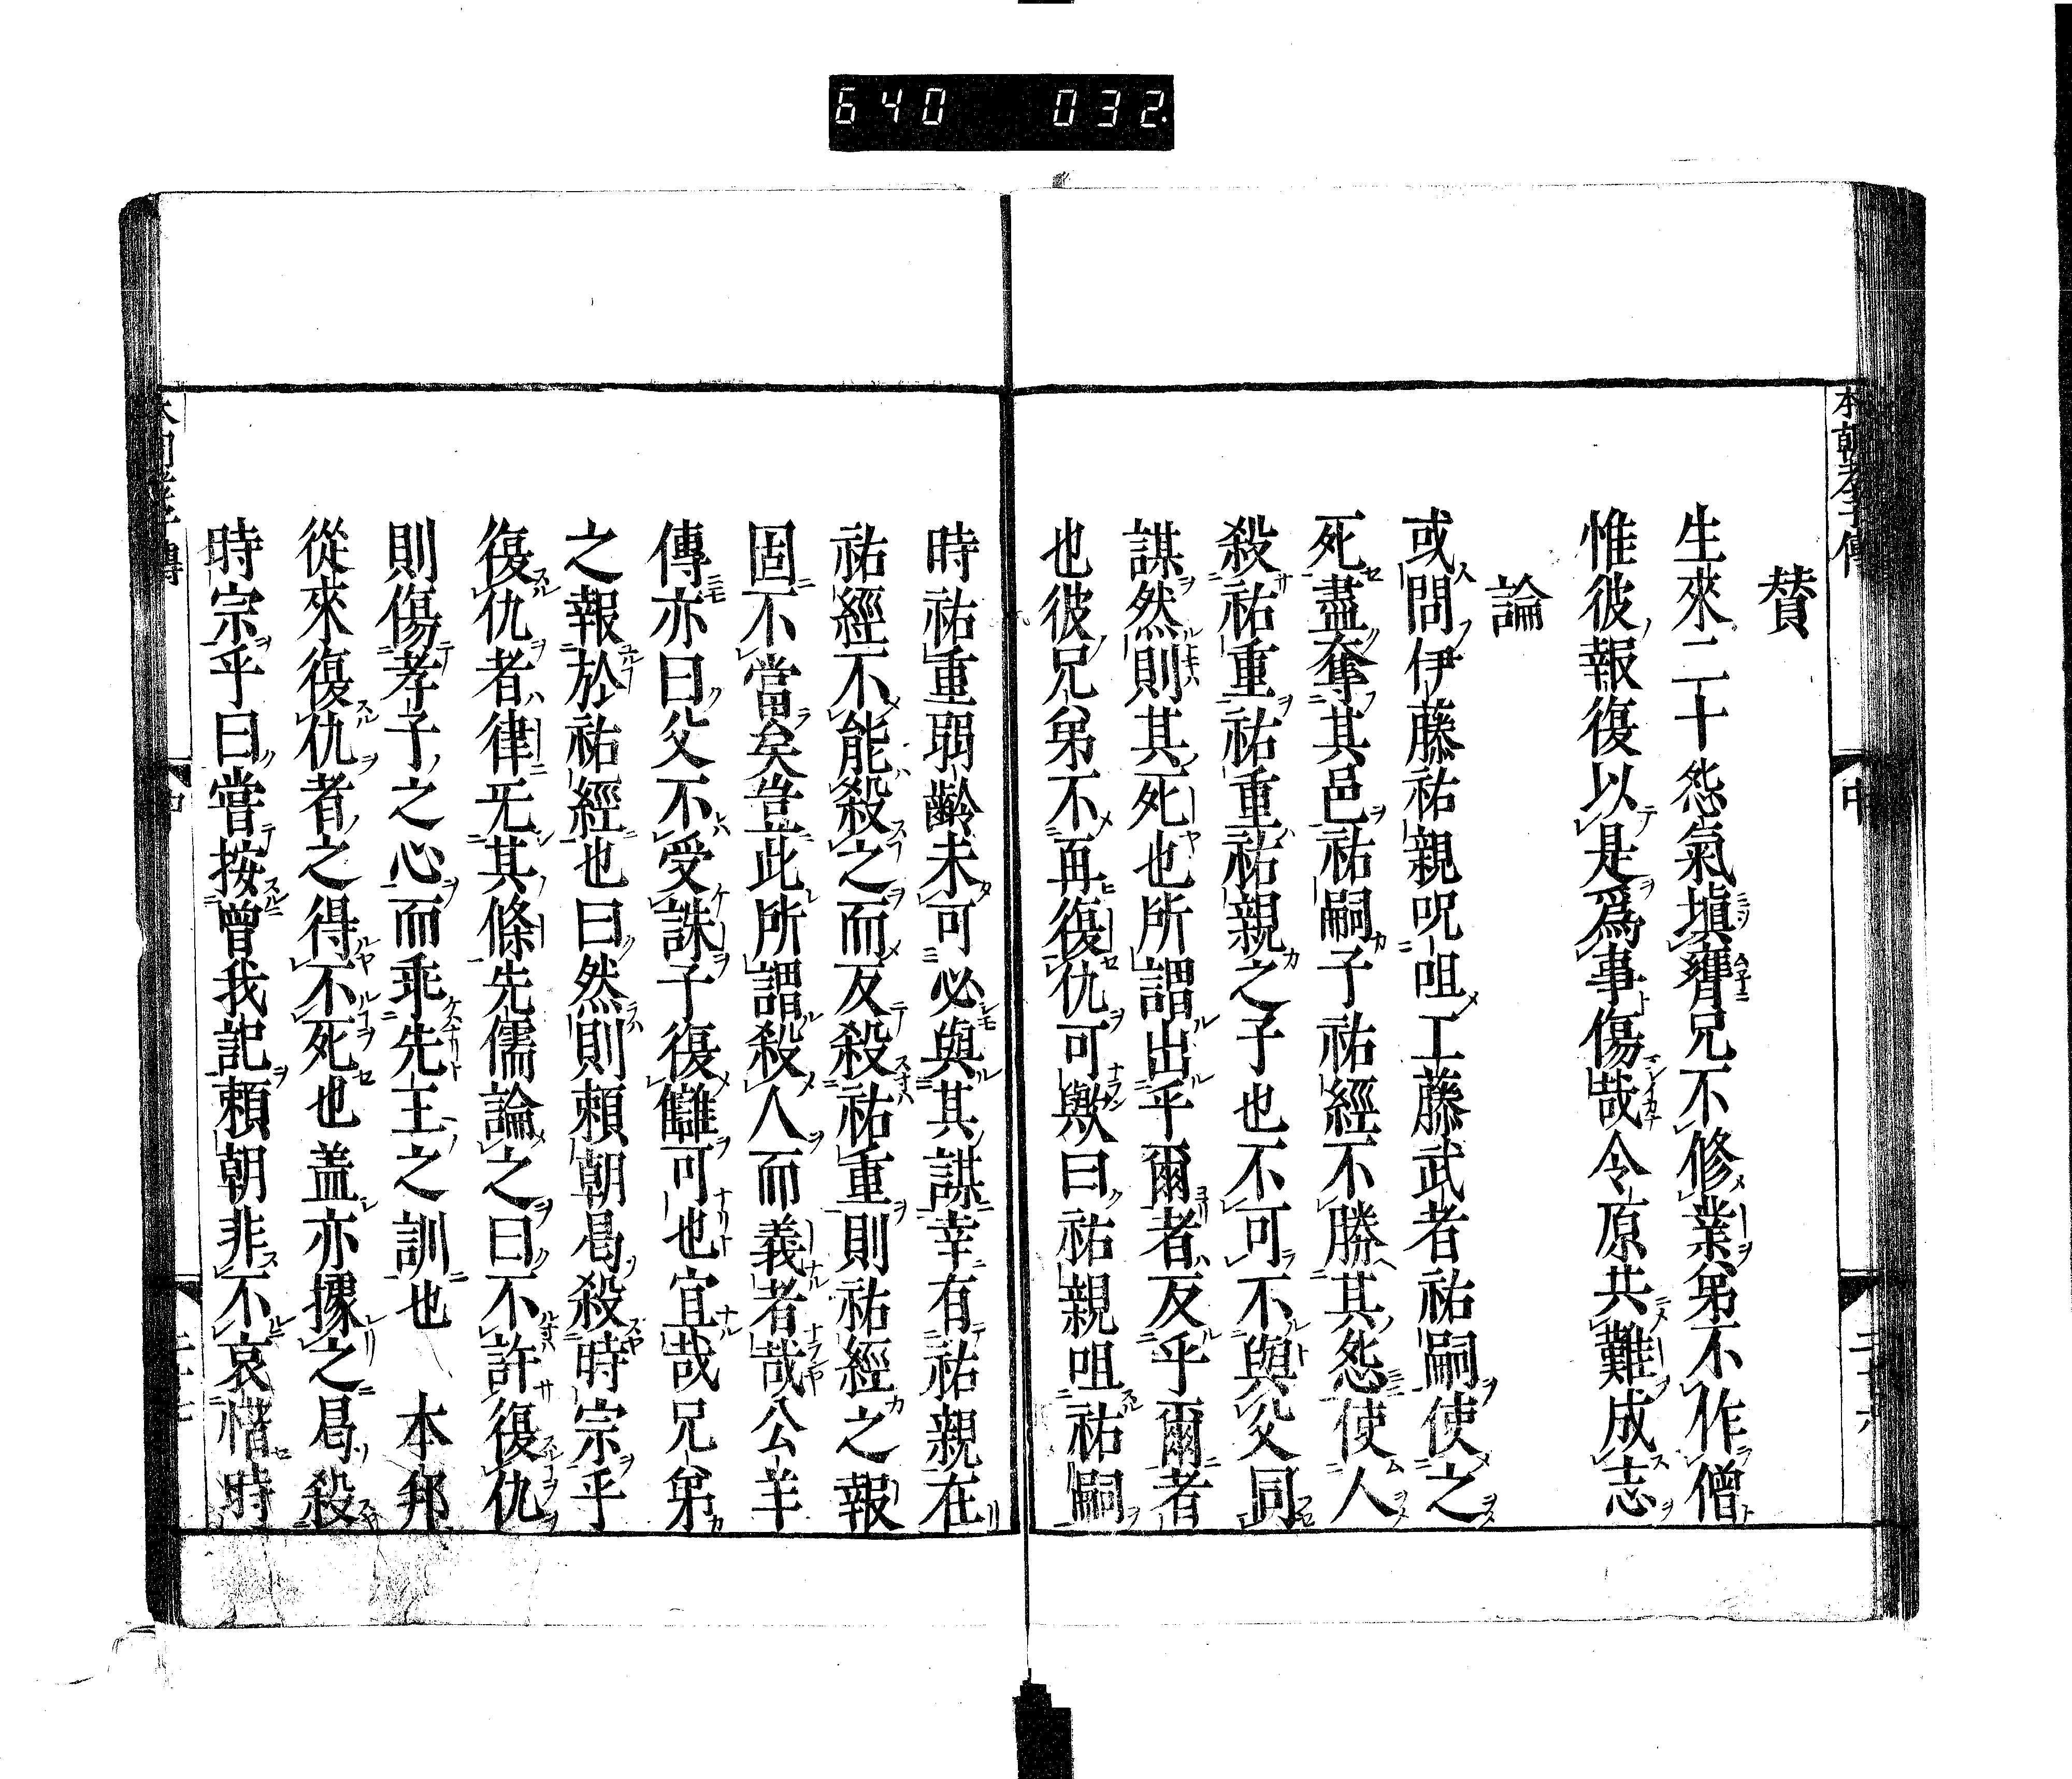 640 032.
本朝孝子傳
中
賛
生來二十怨氣塡膺兄不修業弟不作僧
惟彼報復以是爲事傷哉令原共難成志
論
或問伊藤祐親呪咀工藤武者祐嗣使之
死盡奪其邑祐嗣子祐經不勝其怨使人
殺祐重祐重祐親之子也不可不與父同
謀然則其死也所謂出乎爾者反乎爾者
也彼兄弟不再復仇可歟曰祐親咀祐嗣
時祐重弱齡未可必與其謀幸有祐親在
祐經不能殺之而反殺祐重則祐經之報
固不當矣豈此所謂殺人而義者哉公羊
傳亦曰父不受誅子復讎可也宜哉兄弟
之報於祐經也曰然則頼朝曷殺時宗乎
復仇者律无其條先儒論之曰不許復仇
則傷孝子之心而乖先王之訓也 本邦
從來復仇者之得不死也盖亦據之曷殺
時宗乎曰嘗按曽我記頼朝非不哀惜時
中